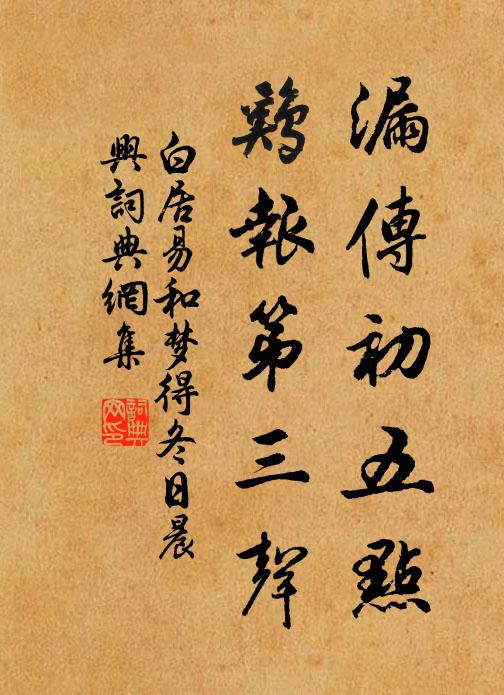 漏傳初五點
鷄報第三聲
白居易和梦得冬日晨
興詞典網集
詞典
网印